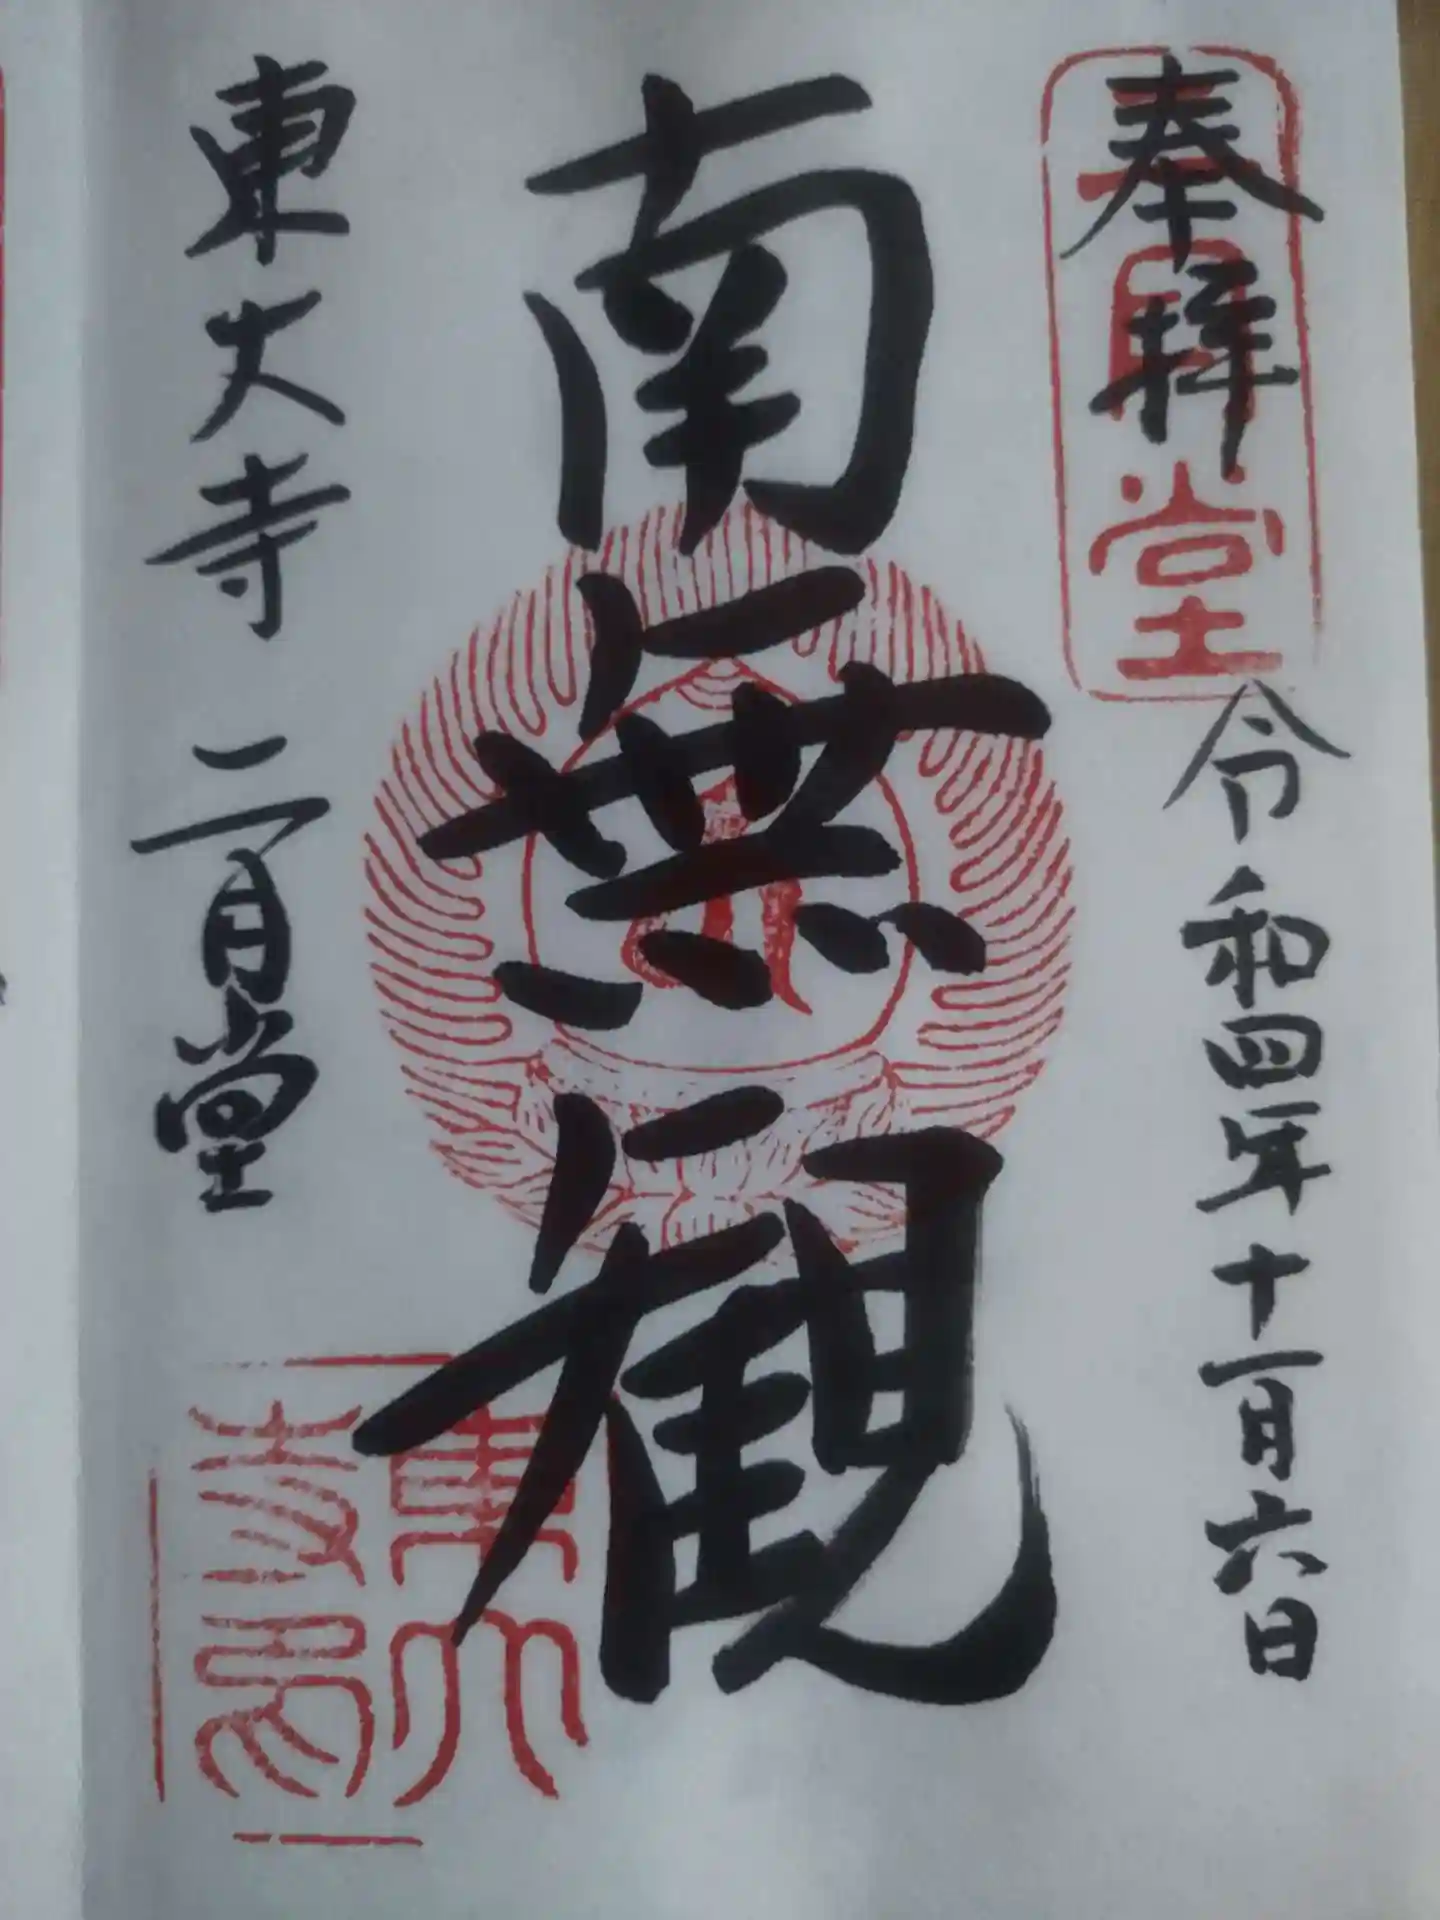 奉拝
二月堂
令和四年十一月六日
南無観
東大寺 二月堂
東大
寺印